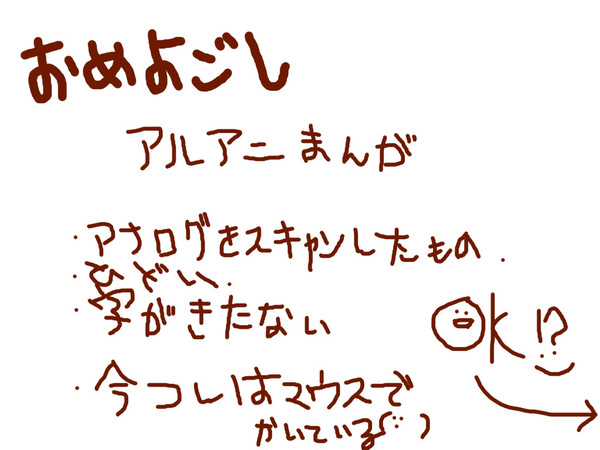 おめよごし
アルアニまんが
・アナログをスキャンしたもの.
・ひどい.
・字がきたない
OK!?
・今コレはマウスで
かいている(¨)